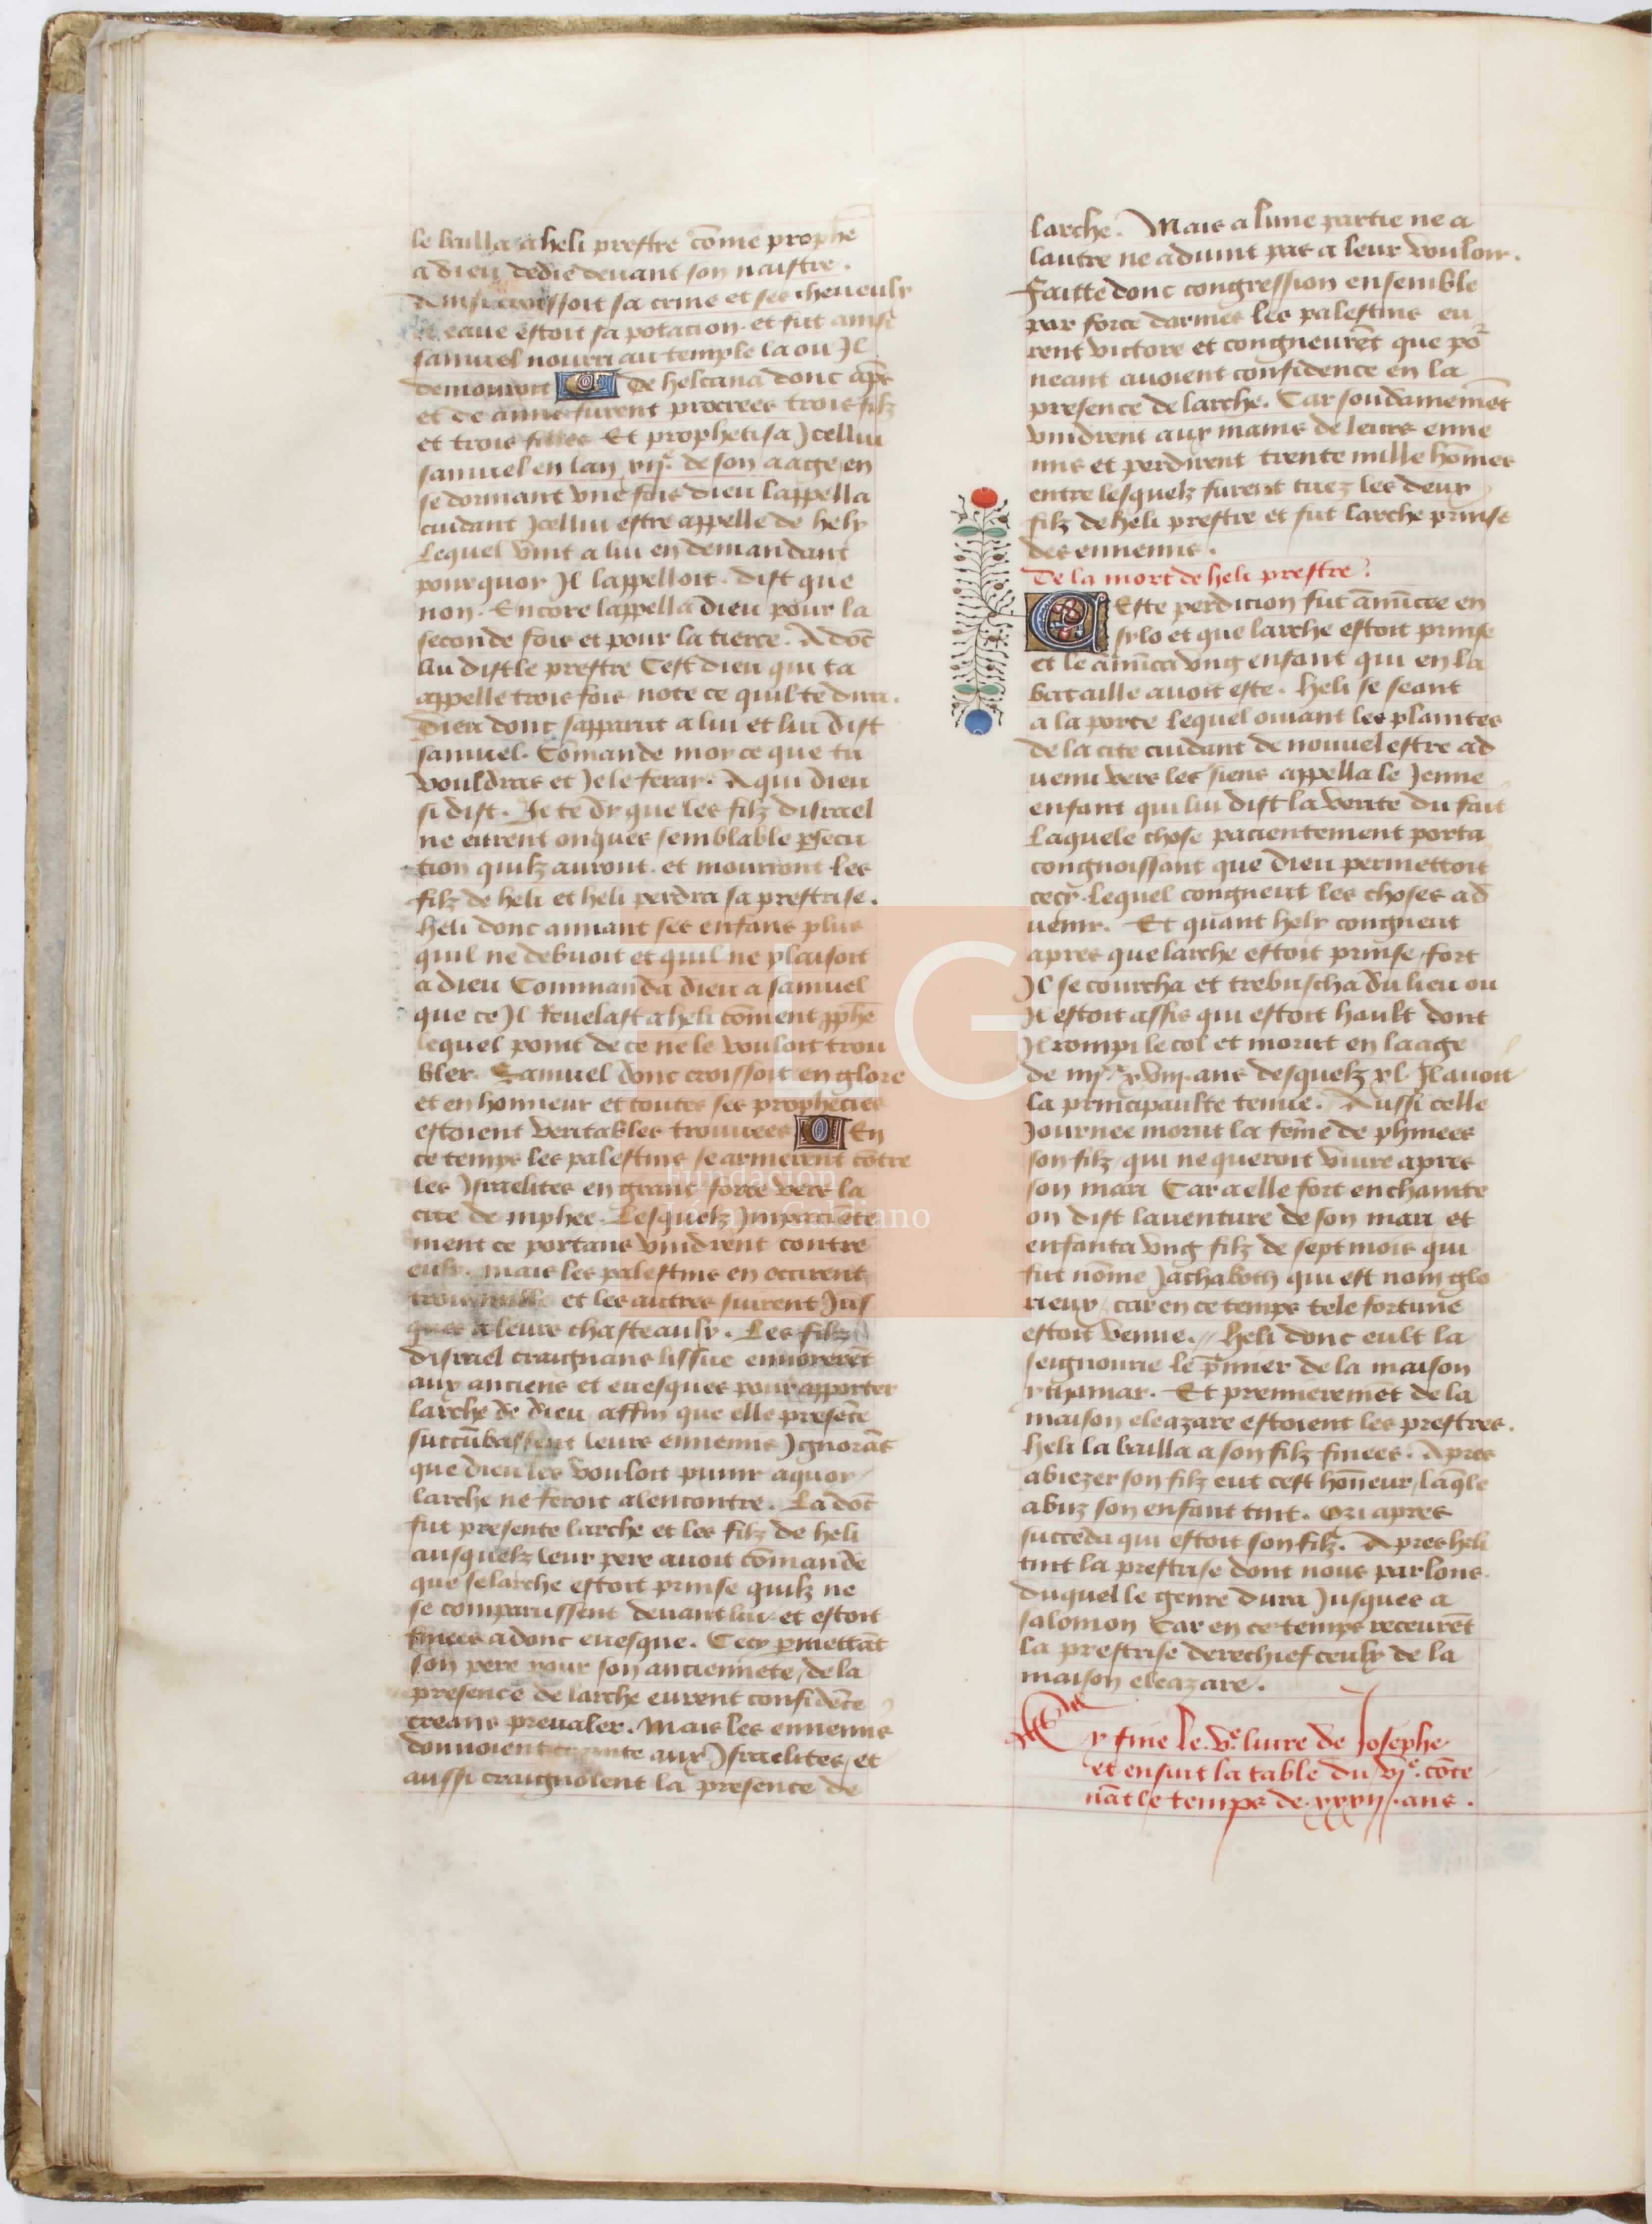 le bailla a heli prestre cōme prophē
a dieu dedie deuant son naistre.
Ainsi croissoit sa crine et ses cheueulx
et eaue estoit sa potacion. et fut ainsi
samuel nourri au temple la ou Jl
demouroit De helcana donc apſ
et de anne furent procrees trois filz
et trois filles Et prophetisa Jcellui
samuel en lan xij.e de son aage en
se dormant vne fois dieu lappella
cuidant Jcellui estre appelle de hely
Lequel vint a lui en demandant
pourquoy Jl lappelloit. dist que
non. Encore lappella dieu pour la
seconde fois et pour la tierce. Adōc
lui dist le prestre Cest dieu qui ta
appelle trois fois note ce quil te dira.
Dieu donc sapparut a lui et lui dist
samuel. Cōmande moy ce que tu
vouldras et Je le feray. A qui dieu
si dist. Je te dy que les filz disrael
ne eurent onques semblable ꝑsecu
tion quilz auront. et mourront les
filz de heli et heli perdra sa prestrise.
heli donc amant ses enfans plus
quil ne debuoit et quil ne plaisoit
a dieu Commanda dieu a samuel
que ce Jl Reuelast a heli cōment ꝓphē
lequel point de ce ne le vouloit trou
bler. Samuel donc croissoit en glore
et en honneur et toutes ses prophecies
estoient veritables trouuees En
ce temps les palestins se armerent cōtre
les Jsraelites en grant force vers la
cite de niphee. Lesquelz Jmpaciēte
ment ce portans vindrent contre
eulx. mais les palestins en occirent
trois mille et les autres suirent Jus
ques a leurs chasteaulx. Les filz
disrael craignans lissue enuoierēt
aux anciens et euesques pour apporter
larche de dieu affin que elle presēte
succūbassent leurs ennemis Jgnorās
que dieu les vouloit punir a quoy
larche ne feroit alencontre. La dōc
fut presente larche et les filz de heli
ausquelz leur pere auoit cōmande
que se larche estoit prinse quilz ne
se comparussent deuant lui. et estoit
finees adonc euesque. Cecy ꝑmettāt
son pere pour son anciennete, de la
presence de larche eurent confidēce
creans preualer. Mais les ennemis
donnoient crainte aux Jsraelites, et
aussi craignoient la presence de
larche. Mais a lune partie ne a
lautre ne aduint pas a leur vouloir.
Faitte donc congression ensemble
par force darmes les palestins eu
rent victore et congneurēt que po͛
neant auoient confidence en la
presence de larche. Car soudainemēt
vindrent aux mains de leurs enne
mis et perdirent trente mille hōmes
entre lesquelz furent tuez les deux
filz de heli prestre et fut larche prinse
des ennemis.
De la mort de heli prestre.
Ceste perdicion fut ānūcee en
sylo et que larche estoit prinse
et le ānūca vng enfant qui en la
bataille auoit este. Heli se seant
a la porte lequel ouiant les plaintes
de la cite cuidant de nouuel estre ad
uenu vers les siens appella le Jenne
enfant qui lui dist la verite du fait
Laquele chose pacientement porta
congnoissant que dieu permettoit
cecy. lequel congneut les choses ad
uenir. Et quant hely congneut
apres que larche estoit prinse, fort
Jl se courcha et trebuscha du lieu ou
Jl estoit assis qui estoit hault dont
Jl rompi le col et morut en laage
de iiij.xx xviij. ans desquelz xl. Jl auoit
la principaulte tenue. Aussi celle
Journee morut la fēme de phinees
son filz, qui ne queroit viure apres
son mari Car a elle fort enchainte
on dist lauenture de son mari et
enfanta vng filz de sept mois qui
fut nōme Jachaboth qui est nom glo
rieux, car en ce temps tele fortune
estoit venue. Heli donc eult la
seignourie le p̄mier de la maison
ythamar. Et premieremēt de la
maison eleazare estoient les prestres.
heli la bailla a son filz finees. Apres
abiezer son filz eut cest hōneur, laq̄le
abuz son enfant tint. Ozi apres
succeda qui estoit son filz. Apres heli
tint la prestrise dont nous parlons.
duquel le genre dura Jusques a
salomon Car en ce temps receurēt
la prestrise derechief ceulx de la
maison eleazare.
Cy fine le v.e liure de Josephe
et ensuit la table du vj.e cōte
nāt le temps de xxxij. ans.
FLG
Fundación
Lázaro Galdiano